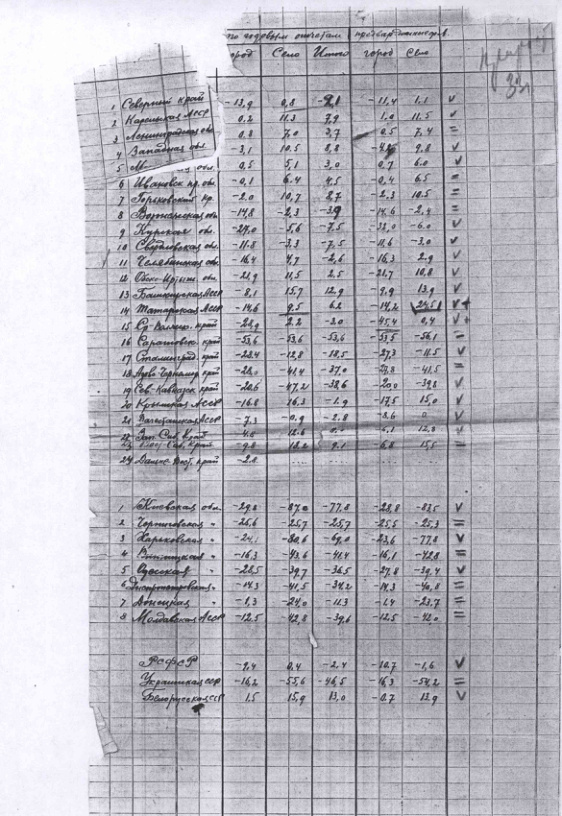 по годовым отчетам
город Село Итого город Село
33
1 Северный край -13,9 0,8 -2,1 -11,4 1,1 v
2 Карельская АССР 0,2 11,3 7,9 1,0 11,5 v
3 Ленинградская обл. 0,8 7,0 3,7 0,5 7,4 =
4 Западная обл. -3,1 10,5 8,8 9,8 v
5 обл. 0,5 5,1 3,0 0,7 6,0 v
6 Ивановск. пр. обл. -0,1 6,4 4,5 -0,4 6,5 =
7 Горьковский кр. -2,0 10,7 8,7 -2,3 10,5 =
8 Воронежская обл. -14,8 -2,3 -3,9 -14,6 -2,4 =
9 Курская обл. -27,0 -5,6 -7,5 -32,0 -6,0 v
10 Свердловская обл. -11,8 -3,3 -7,5 -11,6 -3,0 v
11 Челябинская обл. -16,4 4,7 -2,6 -16,3 2,9 v
12 Обско-Иртыш. обл. -21,9 11,5 2,5 -21,7 10,8 v
13 Башкирская АССР -8,1 15,7 12,9 -9,9 13,9 v
14 Татарская АССР -14,6 9,5 6,2 -14,2 24,5 v +
15 Ср-Волжск. край 2,2 -3,0 -45,4 0,4 v +
16 Саратовск. край -53,6 -53,6 -53,6 -53,5 -56,1 =
17 Сталинград. край -28,4 -12,8 -18,5 -27,3 -11,5 v
18 Азово-Черномор. край -28,0 -41,4 -37,0 -27,8 -41,5 =
19 Сев-Кавказск край -20,6 -47,2 -38,6 -20,0 -39,8 v
20 Крымская АССР -16,8 16,3 -1,9 -17,5 15,0 v
21 АССР -7,3 -0,9 -2,8 -8,6 0 v
22 Зап. Сиб. край 12,6 12,3 v
23 Вост. Сиб. край -9,8 18,2 9,1 -6,8 15,5 =
24 Дальне Вост. край -2,8 .... .... .... ....
1 Киевская обл. -29,8 -87,0 -77,8 -28,8 -83,5 v
2 Черниговская " -26,6 -25,7 -25,7 -25,5 -25,3 =
3 Харьковская " -80,6 -69,0 -23,6 -77,8 v
4 Винницкая " -16,3 -43,6 -41,4 -16,1 -42,8 =
5 Одесская " -28,5 -39,7 -36,5 -27,8 -39,4 v
6 Днепропетровская " -14,3 -41,5 -34,2 -14,3 -40,8 =
7 Донецкая " -1,3 -24,0 -11,3 -1,4 -23,7 =
8 Молдавская АССР -12,5 -42,8 -39,6 -12,5 -42,0 =
РСФСР -9,4 0,4 -2,4 -10,7 -1,6 v
Украинская ССР -16,2 -55,6 -46,5 -16,3 -54,2 =
Белорусская ССР 1,5 15,9 13,0 -0,7 13,9 v